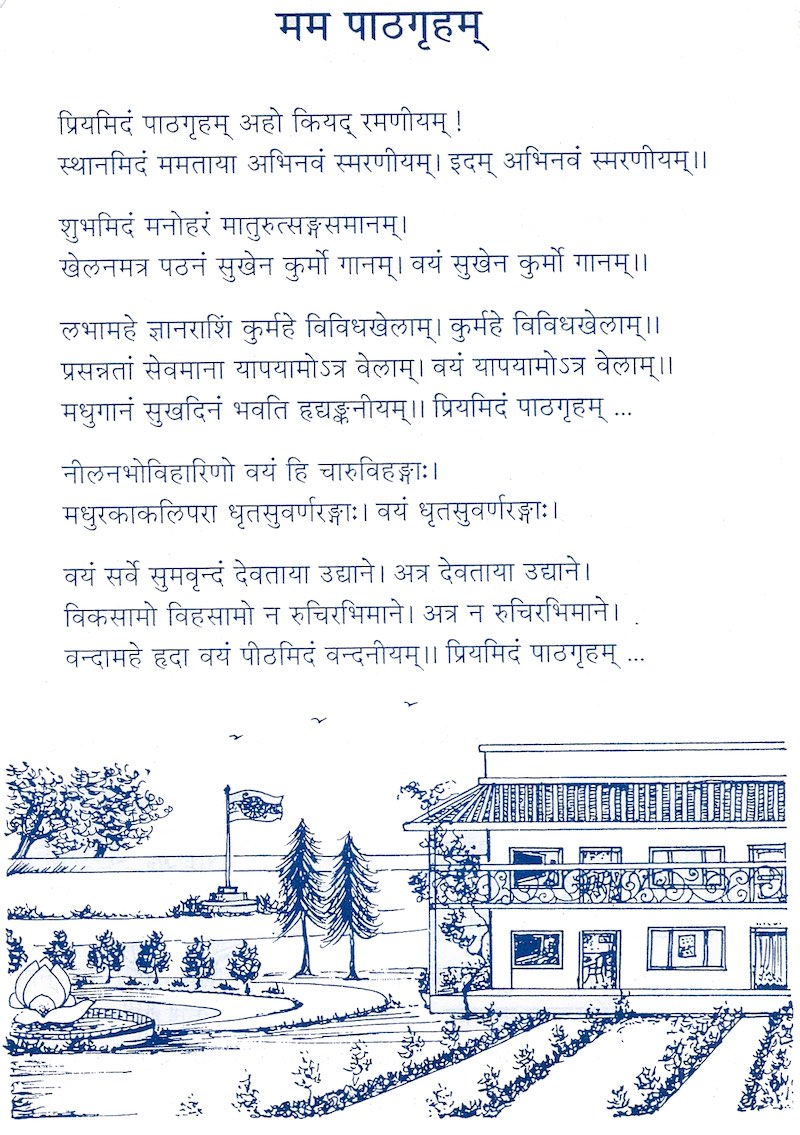 मम पाठगृहम्
प्रियमिदं पाठगृहम् अहो कियद् रमणीयम् !
स्थानमिदं ममताया अभिनवं स्मरणीयम्। इदम् अभिनवं स्मरणीयम्।।
शुभमिदं मनोहरं मातुरुत्सङ्गसमानम्।
खेलनमत्र पठनं सुखेन कुर्मो गानम्। वयं सुखेन कुर्मो गानम्।।
लभामहे ज्ञानराशिं कुर्महे विविधखेलाम्। कुर्महे विविधखेलाम्।।
प्रसन्नतां सेवमाना यापयामोऽत्र वेलाम्। वयं यापयामोऽत्र वेलाम्।।
मधुगानं सुखदिनं भवति हृद्यङ्कनीयम्।। प्रियमिदं पाठगृहम् ...
नीलनभोविहारिणो वयं हि चारुविहङ्गाः।
मधुरकाकलिपरा धृतसुवर्णरङ्गाः। वयं धृतसुवर्णरङ्गाः।
वयं सर्वे सुमवृन्दं देवताया उद्याने। अत्र देवताया उद्याने।
विकसामो विहसामो न रुचिरभिमाने। अत्र न रुचिरभिमाने।
वन्दामहे हृदा वयं पीठमिदं वन्दनीयम्।। प्रियमिदं पाठगृहम् ...